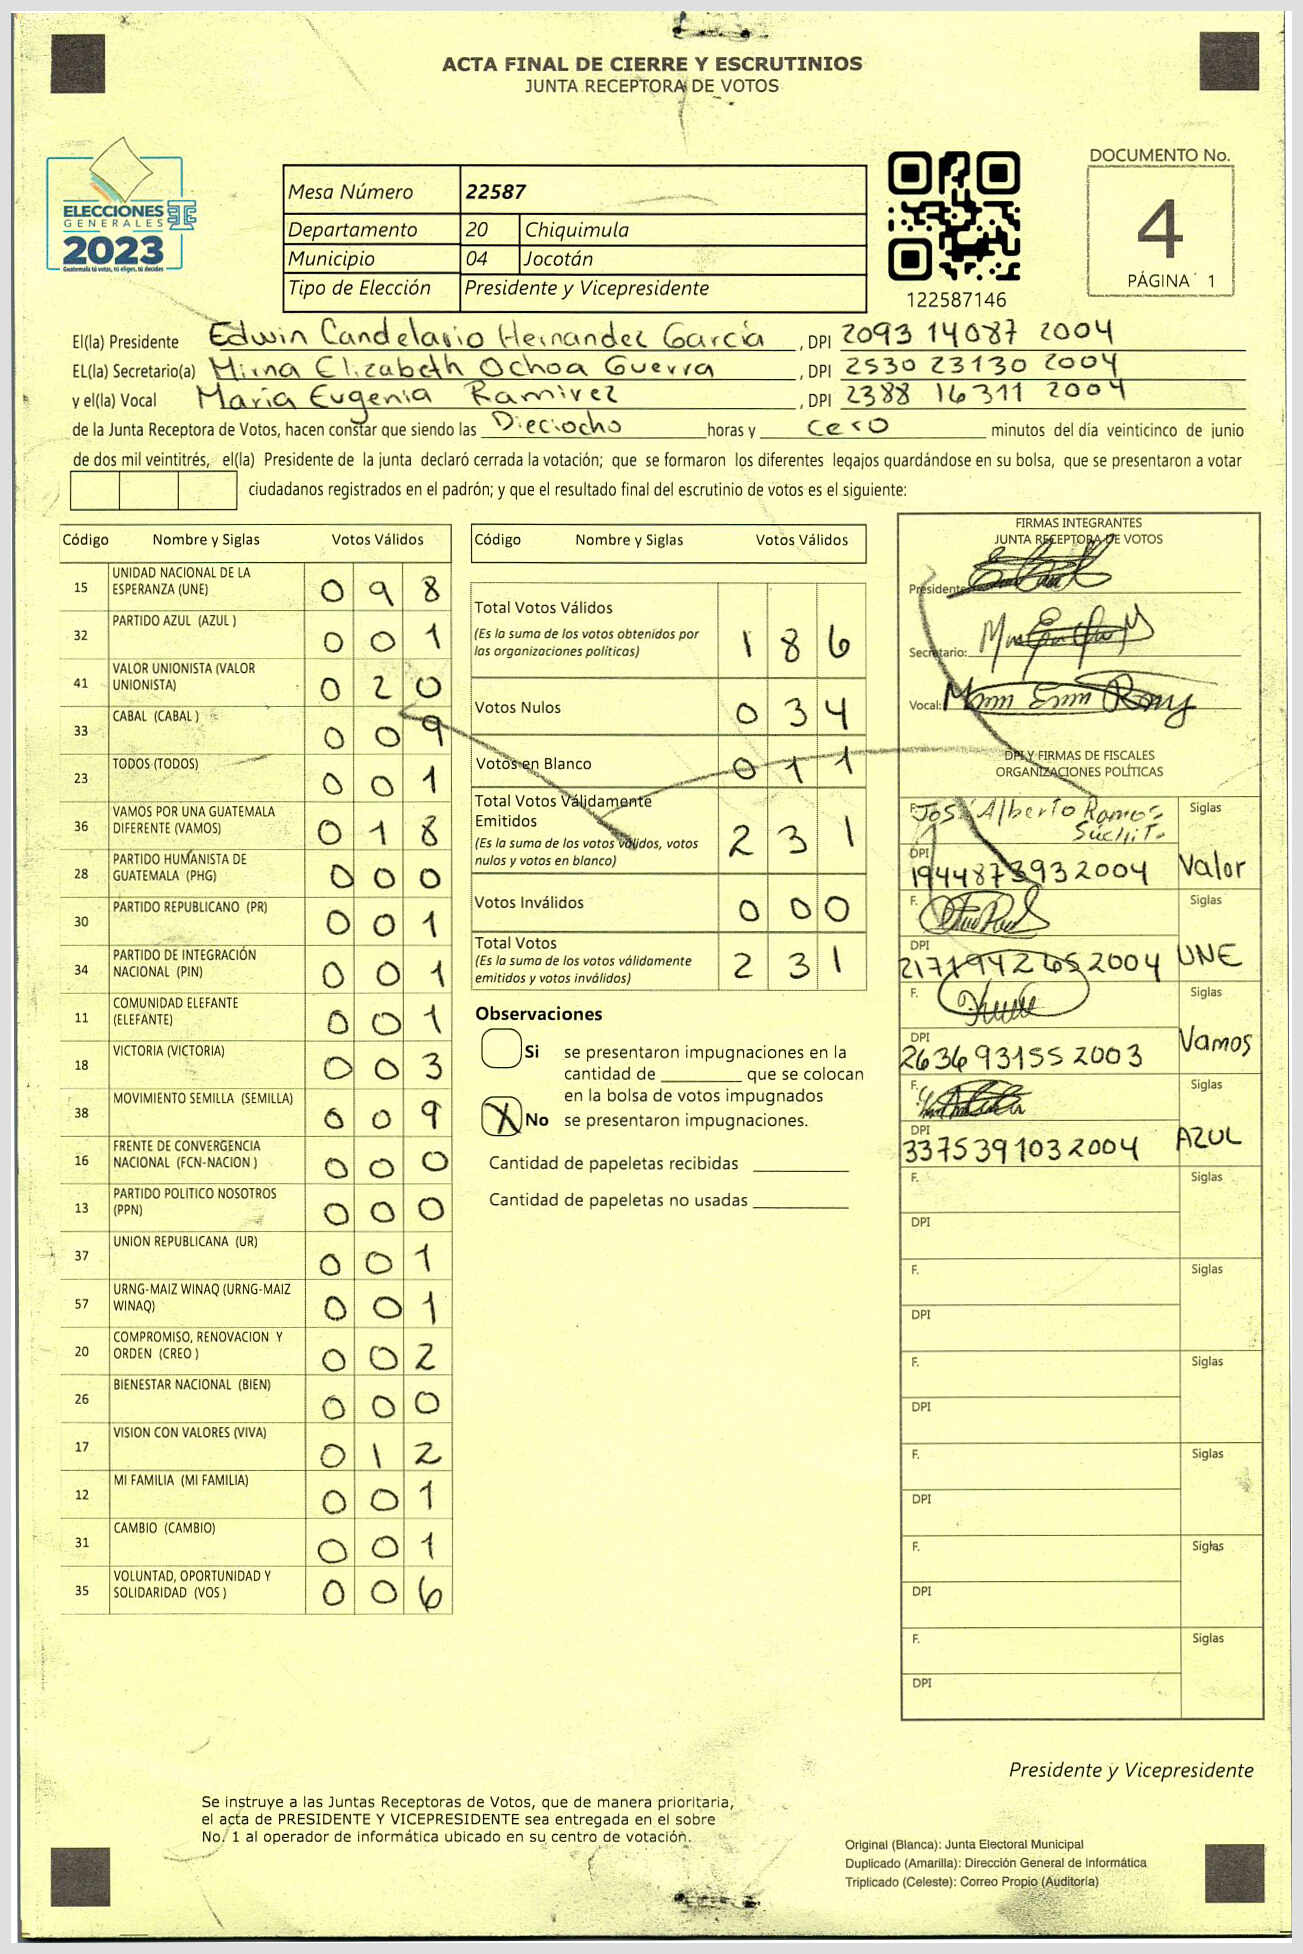 ACTA FINAL DE CIERRE Y ESCRUTINIOS
JUNTA RECEPTORA DE VOTOS
ELECCIONES
GENERALES
2023
Guatemala tú votas, tú eliges, tú decides
Mesa Número 22587
Departamento 20 Chiquimula
Municipio 04 Jocotán
Tipo de Elección Presidente y Vicepresidente
122587146
DOCUMENTO No.
4
PÁGINA 1
El(la) Presidente Edwin Candelario Hernandez García , DPI 2093 14087 2004
EL(la) Secretario(a) Mirna Elizabeth Ochoa Guerra , DPI 2530 23130 2004
y el(la) Vocal María Eugenia Ramirez , DPI 2388 16311 2004
de la Junta Receptora de Votos, hacen constar que siendo las Dieciocho horas y cero minutos del día veinticinco de junio
de dos mil veintitrés, el(la) Presidente de la junta declaró cerrada la votación; que se formaron los diferentes legajos guardándose en su bolsa, que se presentaron a votar
ciudadanos registrados en el padrón; y que el resultado final del escrutinio de votos es el siguiente:
Código Nombre y Siglas Votos Válidos
15 UNIDAD NACIONAL DE LA ESPERANZA (UNE) 0 9 8
32 PARTIDO AZUL (AZUL ) 0 0 1
41 VALOR UNIONISTA (VALOR UNIONISTA) 0 2 0
33 CABAL (CABAL ) 0 0 9
23 TODOS (TODOS) 0 0 1
36 VAMOS POR UNA GUATEMALA DIFERENTE (VAMOS) 0 1 8
28 PARTIDO HUMANISTA DE GUATEMALA (PHG) 0 0 0
30 PARTIDO REPUBLICANO (PR) 0 0 1
34 PARTIDO DE INTEGRACIÓN NACIONAL (PIN) 0 0 1
11 COMUNIDAD ELEFANTE (ELEFANTE) 0 0 1
18 VICTORIA (VICTORIA) 0 0 3
38 MOVIMIENTO SEMILLA (SEMILLA) 0 0 9
16 FRENTE DE CONVERGENCIA NACIONAL (FCN-NACION ) 0 0 0
13 PARTIDO POLITICO NOSOTROS (PPN) 0 0 0
37 UNION REPUBLICANA (UR) 0 0 1
57 URNG-MAIZ WINAQ (URNG-MAIZ WINAQ) 0 0 1
20 COMPROMISO, RENOVACION Y ORDEN (CREO ) 0 0 2
26 BIENESTAR NACIONAL (BIEN) 0 0 0
17 VISION CON VALORES (VIVA) 0 1 2
12 MI FAMILIA (MI FAMILIA) 0 0 1
31 CAMBIO (CAMBIO) 0 0 1
35 VOLUNTAD, OPORTUNIDAD Y SOLIDARIDAD (VOS ) 0 0 6
Código Nombre y Siglas Votos Válidos
Total Votos Válidos 1 8 6
(Es la suma de los votos obtenidos por
las organizaciones políticas)
Votos Nulos 0 3 4
Votos en Blanco 0 1 1
Total Votos Válidamente
Emitidos 2 3 1
(Es la suma de los votos válidos, votos
nulos y votos en blanco)
Votos Inválidos 0 0 0
Total Votos 2 3 1
(Es la suma de los votos válidamente
emitidos y votos inválidos)
Observaciones
Si se presentaron impugnaciones en la
cantidad de ________ que se colocan
en la bolsa de votos impugnados
X No se presentaron impugnaciones.
Cantidad de papeletas recibidas
Cantidad de papeletas no usadas
FIRMAS INTEGRANTES
JUNTA RECEPTORA DE VOTOS
Presidente:
Secretario:
Vocal:
DPI Y FIRMAS DE FISCALES
ORGANIZACIONES POLÍTICAS
F. José Alberto Ramos Siglas
Suchit
DPI 1944873932004 Valor
F. Siglas
DPI 2171942652004 UNE
F. Siglas
DPI 2636931552003 Vamos
F. Siglas
DPI 3375391032004 AZUL
F. Siglas
DPI
F. Siglas
DPI
F. Siglas
DPI
F. Siglas
DPI
F. Siglas
DPI
F. Siglas
DPI
Presidente y Vicepresidente
Se instruye a las Juntas Receptoras de Votos, que de manera prioritaria,
el acta de PRESIDENTE Y VICEPRESIDENTE sea entregada en el sobre
No. 1 al operador de informática ubicado en su centro de votación.
Original (Blanca): Junta Electoral Municipal
Duplicado (Amarilla): Dirección General de Informática
Triplicado (Celeste): Correo Propio (Auditoría)